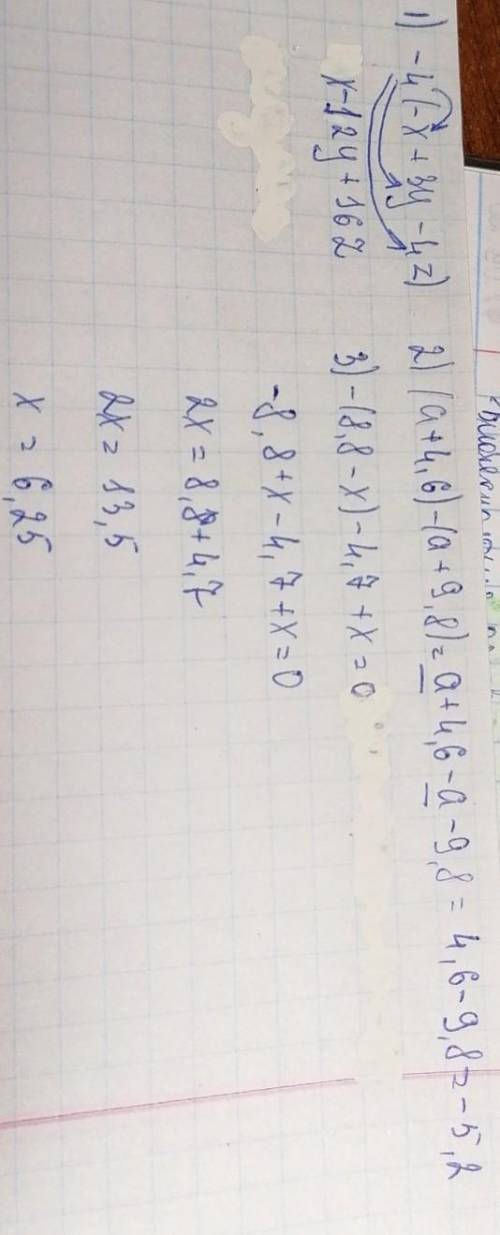 1) -4(-x+3y-4z)
x-12y+16z
2) (a+4,6)-(a+9,8)=a+4,6-a-9,8=4,6-9,8=-5,2
3) -(8,8-x)-4,7+x=0
-8,8+x-4,7+x=0
2x=8,8+4,7
2x=13,5
x=6,25